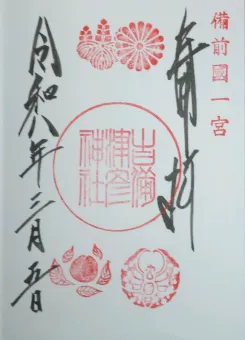 備前國一宮
奉拝
吉備
津彦
神社
令和八年三月五日